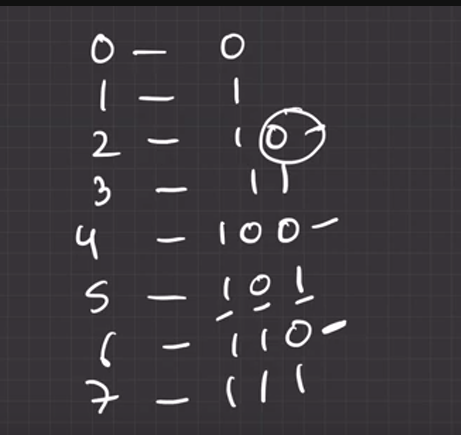 0 - 0
1 - 1
2 - 10
3 - 11
4 - 100
5 - 101
6 - 110
7 - 111